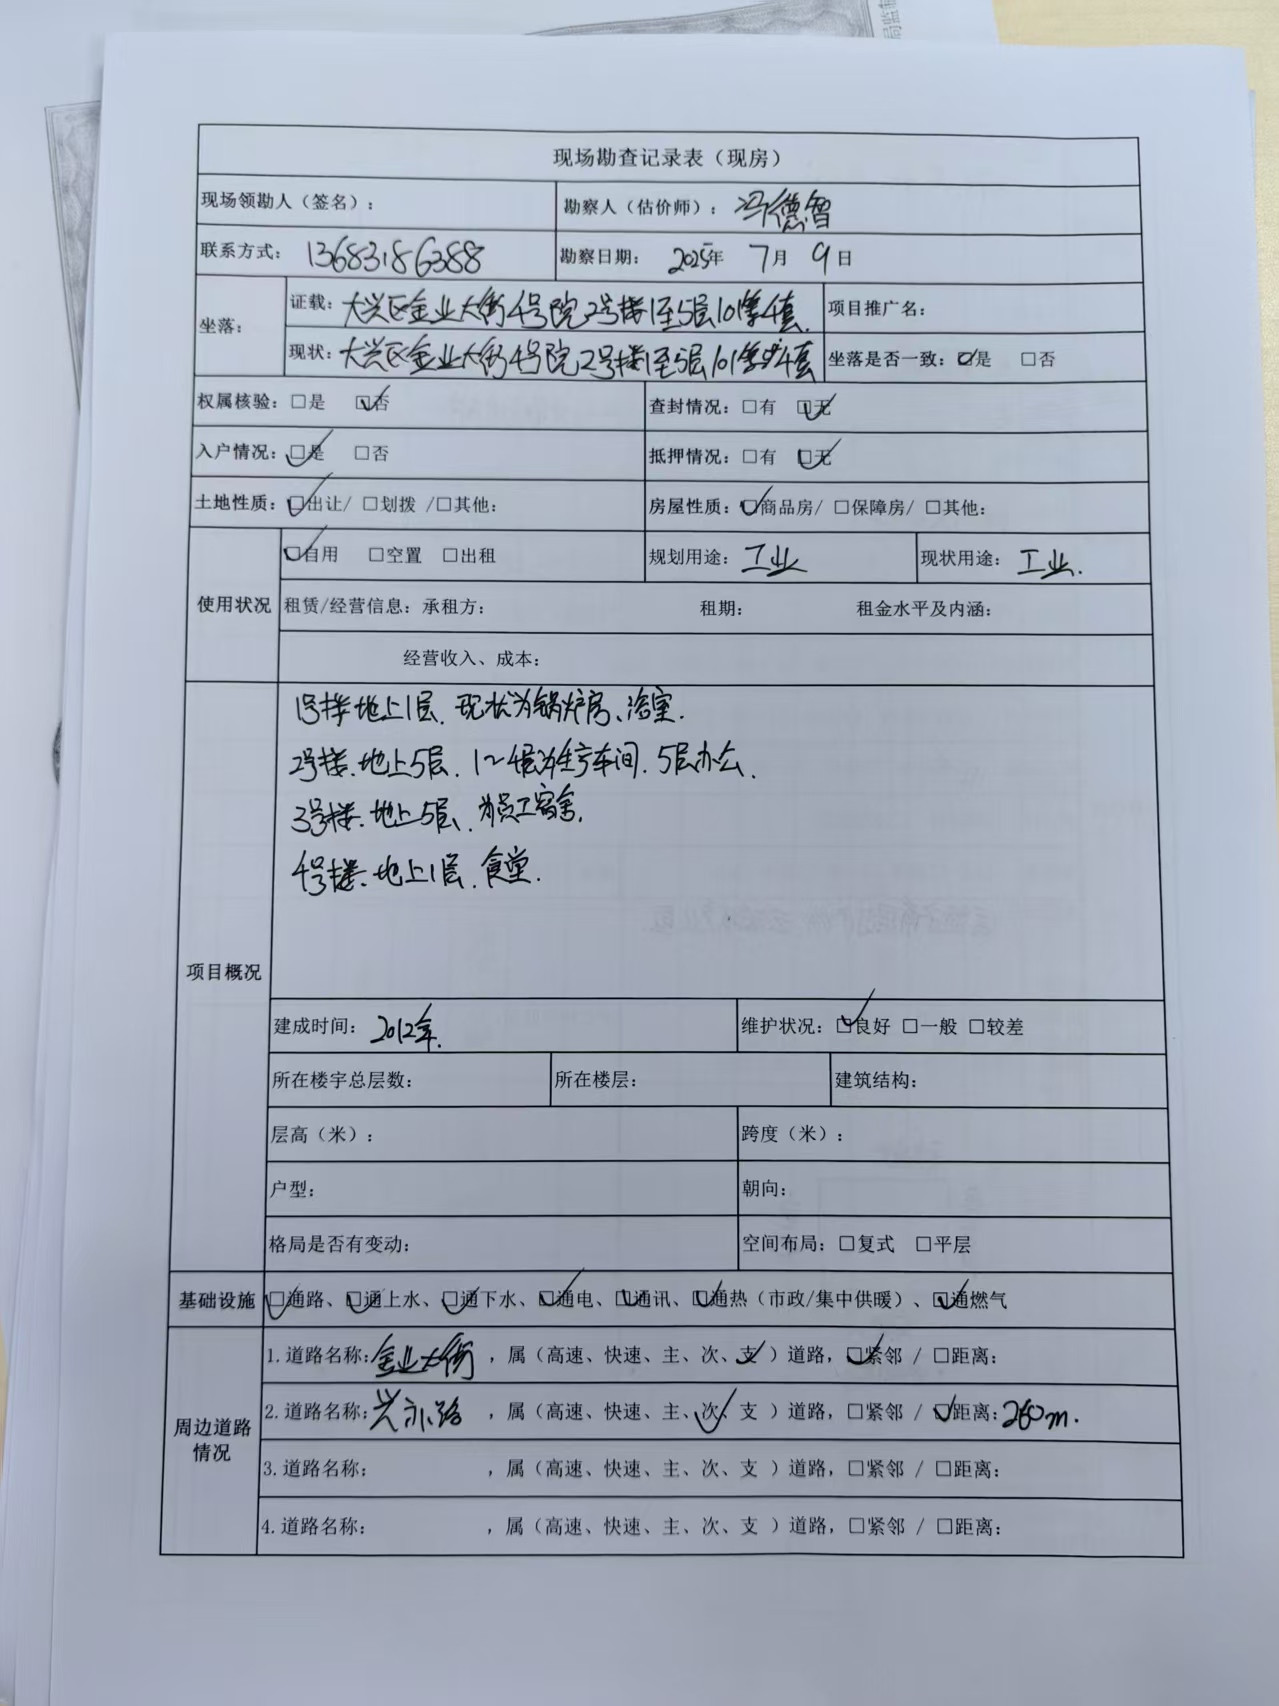 现场勘查记录表（现房）
现场领勘人（签名）：
勘察人（估价师）：冯德智
联系方式：13683186388
勘察日期：2025年 7月 9日
坐落：
证载：大兴区金业大街4号院2号楼1至5层101等4套
项目推广名：
现状：大兴区金业大街4号院2号楼1至5层101等4套
坐落是否一致：☑是 □否
权属核验：□是 ☑否
查封情况：□有 ☑无
入户情况：☑是 □否
抵押情况：□有 ☑无
土地性质：☑出让/ □划拨 /□其他：
房屋性质：☑商品房/ □保障房/ □其他：
使用状况
☑自用 □空置 □出租
规划用途：工业
现状用途：工业.
租赁/经营信息：承租方： 租期： 租金水平及内涵：
经营收入、成本：
项目概况
1号楼地上1层. 现状为锅炉房、浴室.
2号楼、地上5层. 1~4层为生产车间. 5层办公.
3号楼、地上5层. 为员工宿舍.
4号楼、地上1层. 食堂.
建成时间：2012年.
维护状况：☑良好 □一般 □较差
所在楼宇总层数：
所在楼层：
建筑结构：
层高（米）：
跨度（米）：
户型：
朝向：
格局是否有变动：
空间布局：□复式 □平层
基础设施
☑通路、☑通上水、☑通下水、☑通电、☑通讯、☑通热（市政/集中供暖）、☑通燃气
周边道路情况
1.道路名称：金业大街，属（高速、快速、主、次、支✓）道路，☑紧邻 / □距离：
2.道路名称：兴亦路，属（高速、快速、主、次✓、支 ）道路，□紧邻 / ☑距离：260m.
3.道路名称： ，属（高速、快速、主、次、支 ）道路，□紧邻 / □距离：
4.道路名称： ，属（高速、快速、主、次、支 ）道路，□紧邻 / □距离：